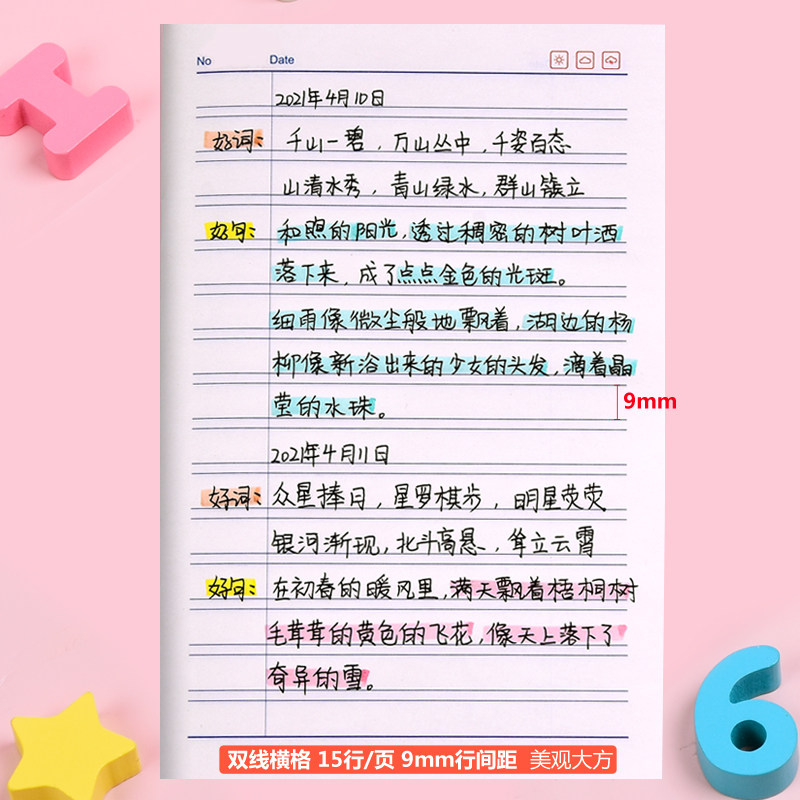 No Date
2021年4月10日
好词： 千山一碧，万山丛中，千姿百态
山清水秀，青山绿水，群山簇立
好句： 和煦的阳光，透过稠密的树叶洒
落下来，成了点点金色的光斑。
细雨像微尘般地飘着，湖边的杨
柳像新浴出来的少女的头发，滴着晶
莹的水珠。
9mm
2021年4月11日
好词： 众星捧日，星罗棋步，明星荧荧
银河渐现，北斗高悬，耸立云霄
好句： 在初春的暖风里，满天飘着梧桐树
毛茸茸的黄色的飞花，像天上落下了
奇异的雪。
双线横格 15行/页 9mm行间距 美观大方
6